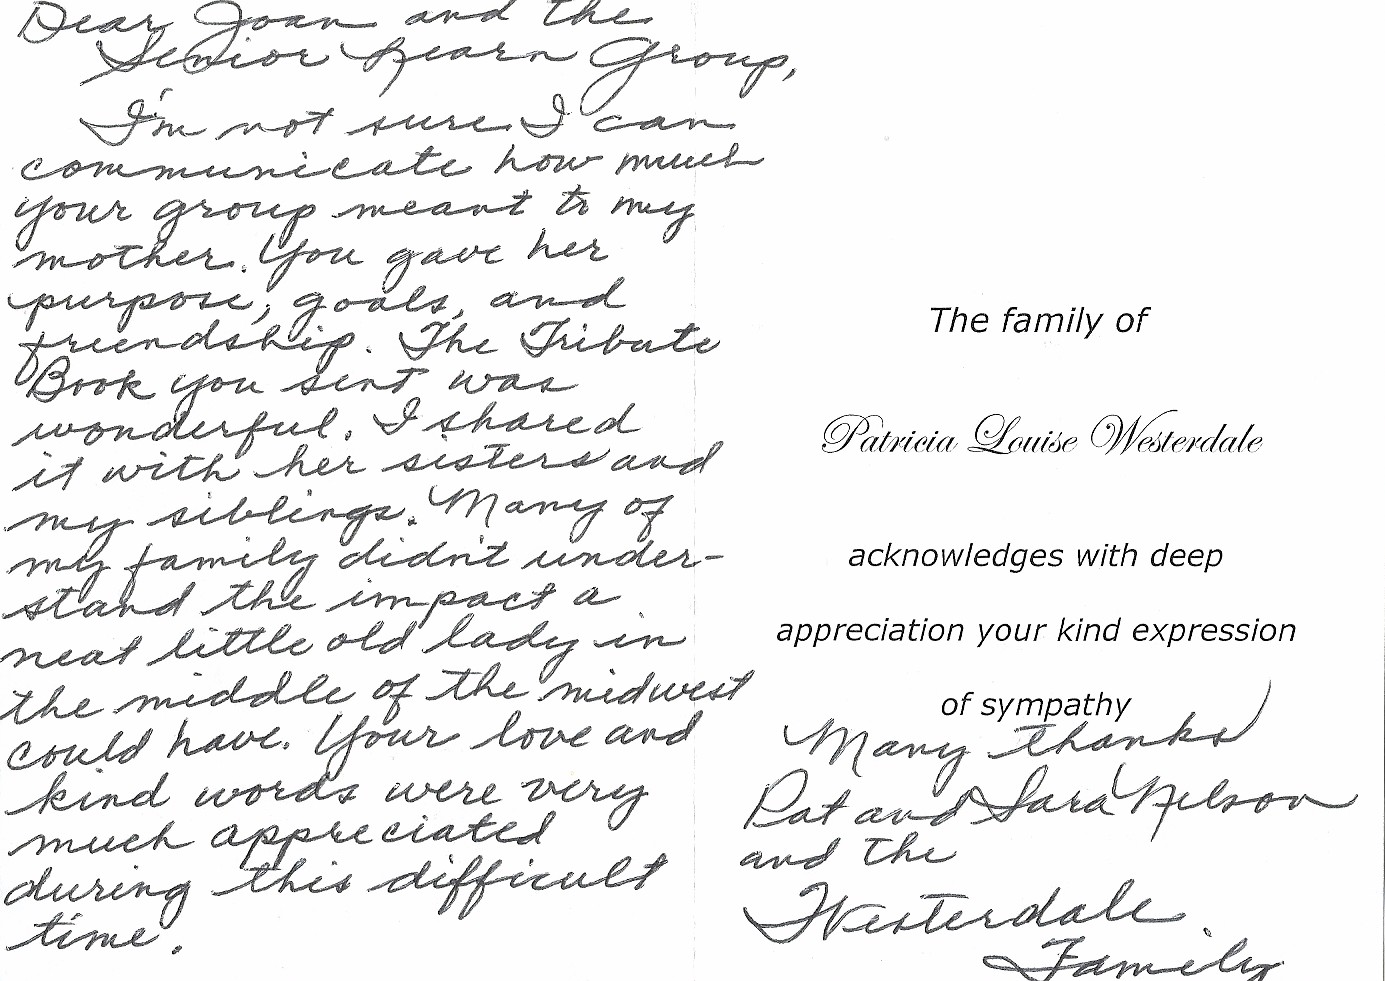 Dear Joan and the
Senior Learn Group,
I'm not sure I can
communicate how much
your group meant to my
mother. You gave her
purpose, goals, and
friendship. The Tribute
Book you sent was
wonderful. I shared
it with her sisters and
my siblings. Many of
my family didn't under-
stand the impact a
neat little old lady in
the middle of the midwest
could have. Your love and
kind words were very
much appreciated
during this difficult
time.
The family of
Patricia Louise Westerdale
acknowledges with deep
appreciation your kind expression
of sympathy
Many thanks
Pat and Sara Nelson
and the
Westerdale
Family